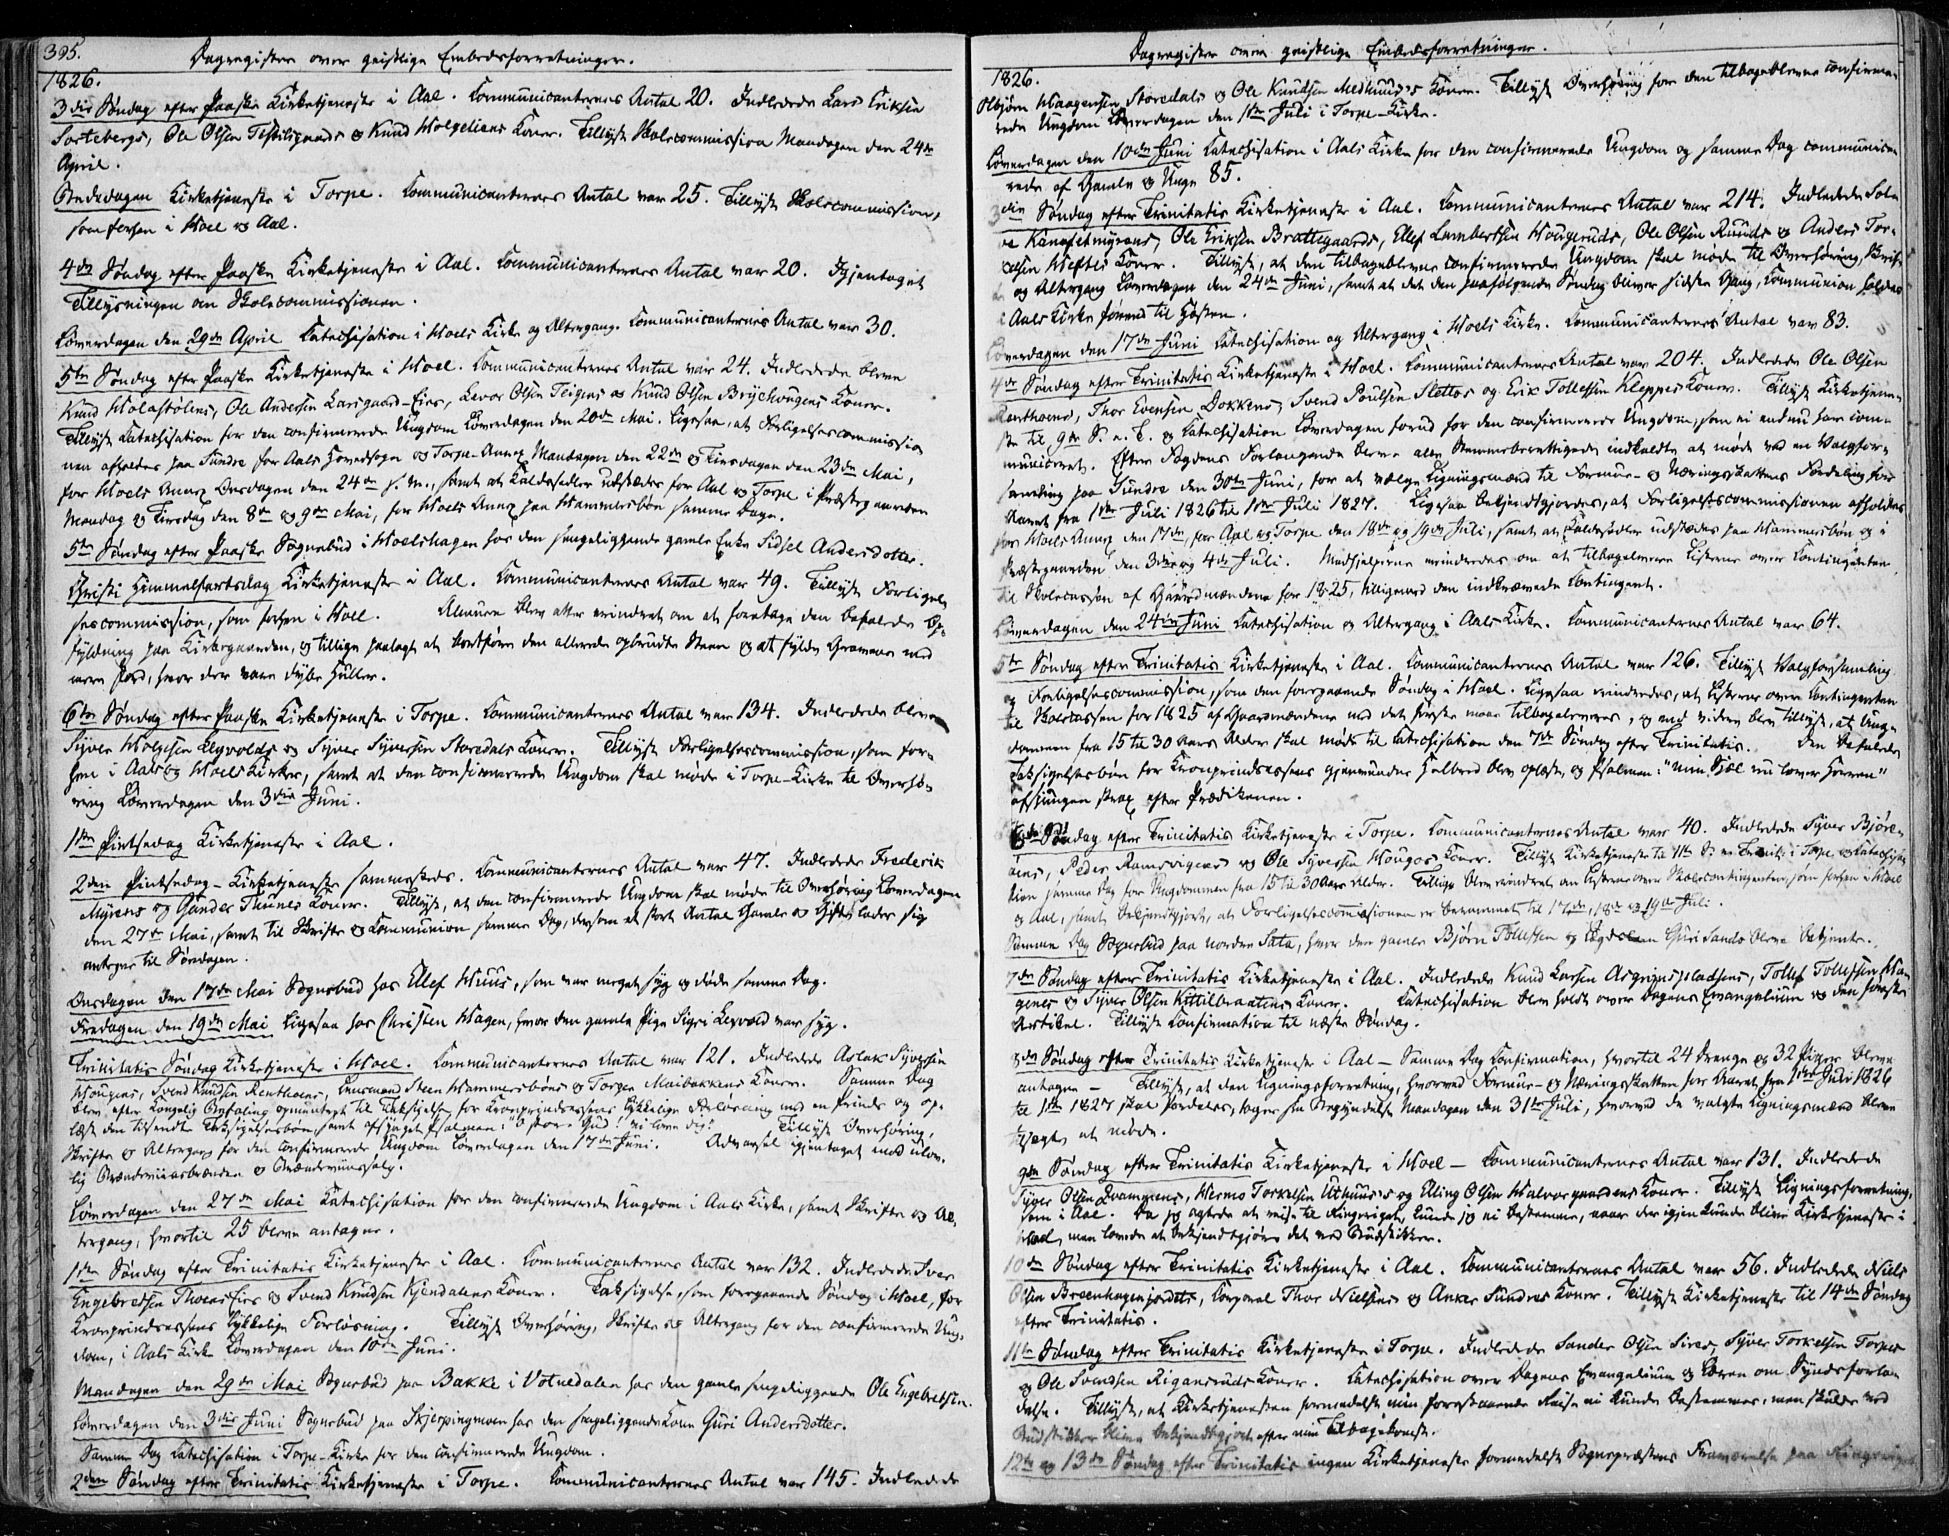 395.
Dagregister over geistlige Embedsforretninger.
1826.
3die Søndag efter Paaske Kirketjeneste i Aal. Communicanternes Antal 20. Indledede Lars Eriksen
Sortebergs, Ole Olsen & Knud Koner. Tillyst Skolecommission Mandagen den 24de
April.
Bededagen Kirketjeneste i Torpe. Communicanternes Antal var 25. Tillyst Skolecommission,
som forhen i Hoel og Aal.
4de Søndag efter Paaske Kirketjeneste i Aal. Communicanternes Antal var 20. Igjentaget
Tillysningen om Skolecommissionen.
Løverdagen den 29de April Catechisation i Hoels Kirke og Altergang. Communicanternes Antal var 30.
5te Søndag efter Paaske Kirketjeneste i Hoel. Communicanternes Antal var 24. Indledede bleve
Knud Holastølens, Ole Andersen Larsgaard-Eies, Levor Olsen Teigens og Knud Olsen Koner.
Tillyst Catechisation for den confirmerede Ungdom Løverdagen den 20de Mai. Ligesaa, at Forligelsescommissio
nen afholdes paa Sundre for Aals Hovedsogn og Torpe-Annex Mandagen den 22de & Tirsdagen den 23de Mai,
for Hoels Annex Onsdagen den 24de s. M., samt at Kaldssedler udstædes for Aal og Torpe i Præstegaarden
Mandag og Tirsdag den 8de og 9de Mai, for Hoels Annex paa Hammersbøn samme Dage.
5te Søndag efter Paaske Sognebud i Hoelshagen hos den sengeliggende gamle Enke Sidsel Andersdotter.
Christi Himmelfartsdag Kirketjeneste i Aal. Communicanternes Antal var 49. Tillyst Forligel-
sescommission, som forhen i Hoel. Almuen blev atter erindret om at foretage den befalede Op-
fyldning paa Kirkegaarden, og tillige paalagt at bortføre den allerede opbrudte Steen og at fylde Gravene med
mere Jord, hvor der vare dybe Huller.
6te Søndag efter Paaske Kirketjeneste i Torpe. Communicanternes Antal var 134. Indledede bleve
Syver Holgesen Legvolds og Syver Syversen Storedals Koner. Tillyst Forligelsescommission, som for-
hen i Aals og Hoels Kirker, samt at den confirmerede Ungdom skal møde i Torpe-Kirke til Overhø-
ring Løverdagen den 3die Juni.
1ste Pintsedag Kirketjeneste i Aal.
2den Pintsedag - Kirketjeneste sammesteds. Communicanternes Antal var 47. Indledede Frederik
Myrens og Gunder Thunes Koner. Tillyst, at den confirmerede Ungdom skal møde til Overhøring Løverdagen
den 27de Mai, samt til Skrifte og Communion samme Dag, dersom et stort Antal Gamle og Gifte lader sig
antegne til Søndagen.
Onsdagen den 17de Mai Sognebud hos Ellef Huus, som var meget syg og døde samme Dag.
Fredagen den 19de Mai ligesaa hos Christen Hagen, hvor den gamle Pige Sigri Legvold var syg.
Trinitatis Søndag Kirketjeneste i Hoel. Communicanternes Antal var 121. Indledede Aslak Syversen
Hougens, Svend Knudsen Renthoens, Lensmand Steen Hammersbøns og Torger Maibakkens Koner. Samme Dag
blev efter kongelig Befaling opmuntret til Taksigelse for Kronprindsessens lykkelige Forløsning med en Prinds og op-
læst den tilsendte Taksigelsesbøn, samt afsjunget Psalmen: "O store Gud! vi love dig." Tillyst Overhøring,
Skrifte og Altergang for den confirmerede Ungdom Løverdagen den 17de Juni. Advarsel igjentaget mod ulov-
lig Brændeviinsbrænden & Brændeviinssalg.
Løverdagen den 27de Mai Catechisation for den confirmerede Ungdom i Aals Kirke, samt Skrifte og Al-
tergang, hvortil 25 bleve antagne.
1ste Søndag efter Trinitatis Kirketjeneste i Aal. Communicanternes Antal var 132. Indledede Iver
Engebretsen Thoens Eies og Svend Knudsen Kjendalens Koner. Taksigelse, som foregaaende Søndag i Hoel, for
Kronprindsessens lykkelige Forløsning. Tillyst Overhøring, Skrifte og Altergang for den confirmerede Ung-
dom, i Aals Kirke Løverdagen den 10de Juni.
Mandagen den 29de Mai Sognebud paa Bakke i Votnedalen hos den gamle sengeliggende Ole Engebretsen.
Løverdagen den 3die Juni Sognebud paa Skjerpingmoen hos den sengeliggende Kone Guri Andersdotter.
Samme Dag Catechisation i Torpe-Kirke for den confirmerede Ungdom.
2den Søndag efter Trinitatis Kirketjeneste i Torpe. Communicanternes Antal var 145. Indledede
Dagregister over geistlige Embedsforretninger.
1826.
Asbjørn Haagensen Storedals & Ole Knudsen Medhuus's Koner. Tillyst Overhøring for den tilbageblevne confirme-
rede Ungdom Løverdagen den 1ste Juli i Torpe-Kirke.
Løverdagen den 10de Juni Catechisation i Aals Kirke for den confirmerede Ungdom og samme Dag communice-
rede af Gamle & Unge 85.
3die Søndag efter Trinitatis Kirketjeneste i Aal. Communicanternes Antal var 214. Indledede Tol-
Ole Eriksen Brattegaards, Ellef Lambertsen Hougeruds, Ole Olsen Ruuds & Anders Tor-
Heftes Koner. Tillyst, at den tilbageblevne confirmerede Ungdom skal møde til Overhøring, Skrif-
te og Altergang Løverdagen den 24de Juni, samt at det den paafølgende Søndag bliver sidste Gang, Communion holdes
i Aals Kirke førend til Høsten.
Løverdagen den 17de Juni Catechisation og Altergang i Hoels Kirke. Communicanternes Antal var 83.
4de Søndag efter Trinitatis Kirketjeneste i Hoel. Communicanternes Antal var 204. Indledede Ole Olsen
Renthoens, Thor Evensen Dokkens, Svend Poulsen Slettos og Erik Tollefsen Kleppes Koner. Tillyst Kirketjene-
ste til 9de S. e. T. og Catechisation Løverdagen forud for den confirmerede Ungdom, som ei endnu har com-
municeret. Efter Fogdens Forlangende bleve alle Stemmeberettigede indkaldte at møde ved en Valgfor-
samling paa Sundre den 30te Juni, for at vælge Ligningsmænd til Formue- og Næringsskattens Fordeling for
Aaret fra 1ste Juli 1826 til 1ste Juli 1827. Ligesaa bekjendtgjordes, at Forligelsescommissionen afholdes
for Hoels Annex den 17de, for Aal og Torpe den 18de og 19de Juli, samt at Kaldssedler udstædes paa Hammersbøn og i
Præstegaarden den 3die og 4de Juli. Medhjelperne erindredes om at tilbagelevere Listerne over Contingenten
til Skolecassen af Gaardmændene for 1825, tilligemed den indkrævede Contingent.
Løverdagen den 24de Juni Catechisation og Altergang i Aals Kirke. Communicanternes Antal var 64.
5te Søndag efter Trinitatis Kirketjeneste i Aal. Communicanternes Antal var 126. Tillyst Valgforsamling
og Forligelsescommission, som den foregaaende Søndag i Hoel. Ligesaa erindredes, at Listerne over Contingenten
til Skolecassen for 1825 af Gaardmændene med det første maae tilbageleveres, og endvidere blev tillyst, at Ung-
dommen fra 15 til 30 Aars Alder skal møde til Catechisation den 7de Søndag efter Trinitatis. Den befalede
Taksigelsesbøn for Kronprindsessens gjenvundne Helbred blev oplæst, og Psalmen: "Min Sjæl nu lover Herren"
afsjungen strax efter Prædikenen.
6te Søndag efter Trinitatis Kirketjeneste i Torpe. Communicanternes Antal var 40. Indledede Syver Bjøre-
Peder Ramsvigens og Ole Syversen Hougos Koner. Tillyst Kirketjeneste til 11te S. e. Trinit. i Torpe og Catechisa-
tion samme Dag for Ungdommen fra 15 til 30 Aars Alder. Tillige blev erindret om Listerne over Skolecontingenten, som forhen i Hoel
og Aal, samt bekjendtgjort, at Forligelsescommissionen er berammet til 17de, 18de og 19de Juli.
Samme Dag Sognebud paa nordre Sata, hvor den gamle Bjørn Tollefsen og Guri Sands bleve betjente.
7de Søndag efter Trinitatis Kirketjeneste i Aal. Indledede Knud Larsen Asgrimspladsens, Tollef Tollefsen Ha-
genes og Syver Olsen Kittilbraattens Koner. Catechisation blev holdt over Dagens Evangelium og den første
Artikel. Tillyst Confirmation til næste Søndag.
8de Søndag efter Trinitatis Kirketjeneste i Aal - Samme Dag Confirmation, hvortil 24 Drenge og 32 Piger bleve
antagne - Tillyst, at den Ligningsforretning, hvorved Formue- og Næringsskatten for Aaret fra 1ste Juli 1826
til 1ste 1827 skal fordeles, tager sin Begyndelse Mandagen den 31te Juli, hvorved de valgte Ligningsmænd bleve
at møde.
9de Søndag efter Trinitatis Kirketjeneste i Hoel - Communicanternes Antal var 131. Indledede
Syver Olsen Qvammens, Hermo Torkelsen Uthuus's og Elling Olsen Halvorgaardens Koner. Tillyst Ligningsforretning,
som i Aal. Da jeg agtede at reise til Ringerige, kunde jeg ei bestemme, naar der igjen kunde blive Kirketjeneste i
Hoel, men lovede at bekjendtgjøre det ved Budstikker.
10de Søndag efter Trinitatis Kirketjeneste i Aal. Communicanternes Antal var 56. Indledede Niels
Olsen Corporal Thor Nielsens og Anker Sundres Koner. Tillyst Kirketjeneste til 14de Søndag
efter Trinitatis.
11te Søndag efter Trinitatis Kirketjeneste i Torpe. Indledede Sander Olsen Sires, Syver Torkelsen Torpes
og Ole Svendsen Rigansruds Koner. Catechisation over Dagens Evangelium og Læren om Syndsforla-
delse. Tillyst, at Kirketjenesten formedelst min forestaaende Reise ei kunde bestemmes, men skulde ved
Budstikker blive bekjendtgjort efter min Tilbagekomst.
12te og 13de Søndag efter Trinitatis ingen Kirketjeneste formedelst Sognepræstens Fraværelse paa Ringerige.